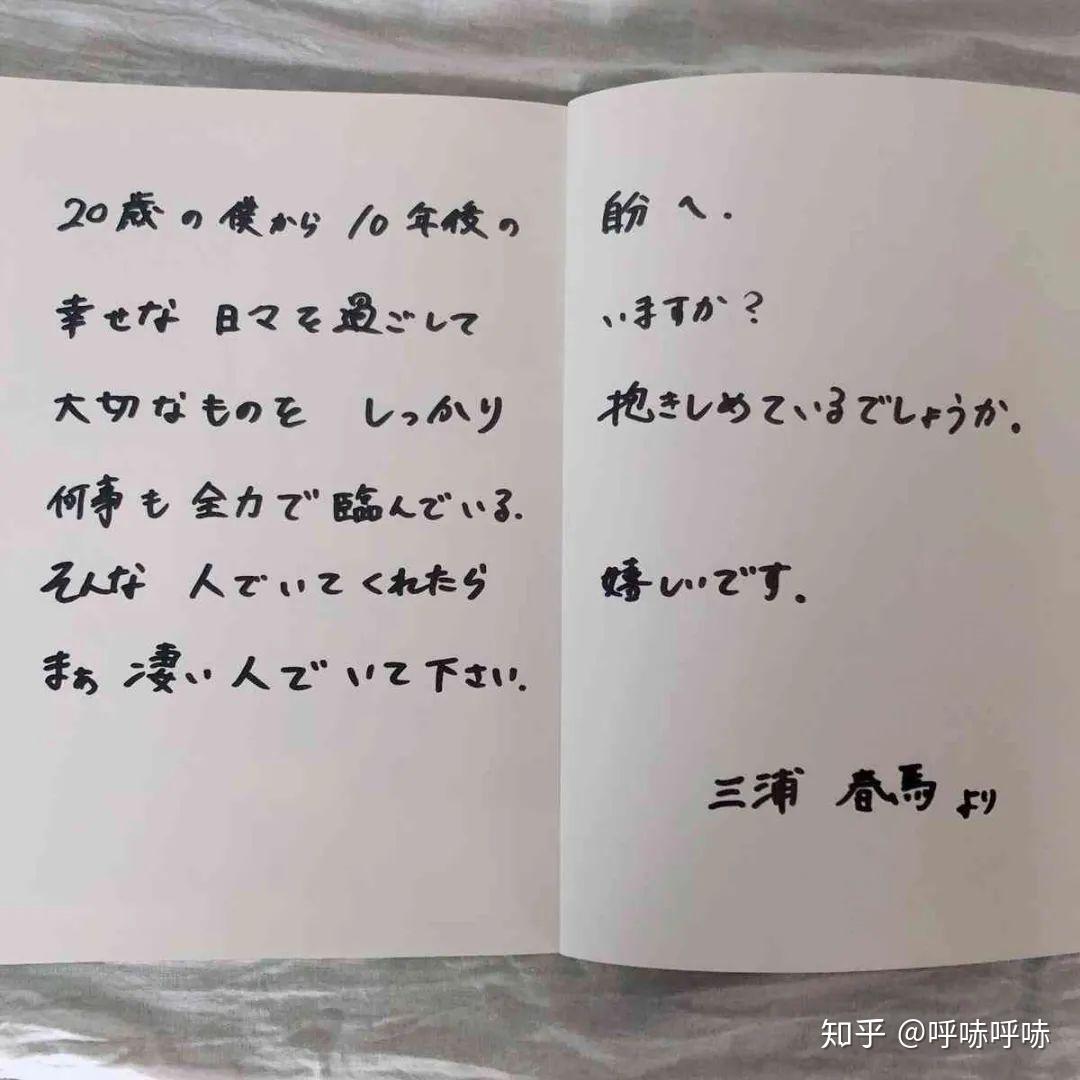 20歳の僕から10年後の自分へ.
幸せな日々を過ごしていますか?
大切なものを しっかり抱きしめているでしょうか。
何事も全力で臨んでいる.
そんな 人でいてくれたら嬉しいです.
まぁ 凄い人でいて下さい.
三浦 春馬より
知乎 @呼哧呼哧